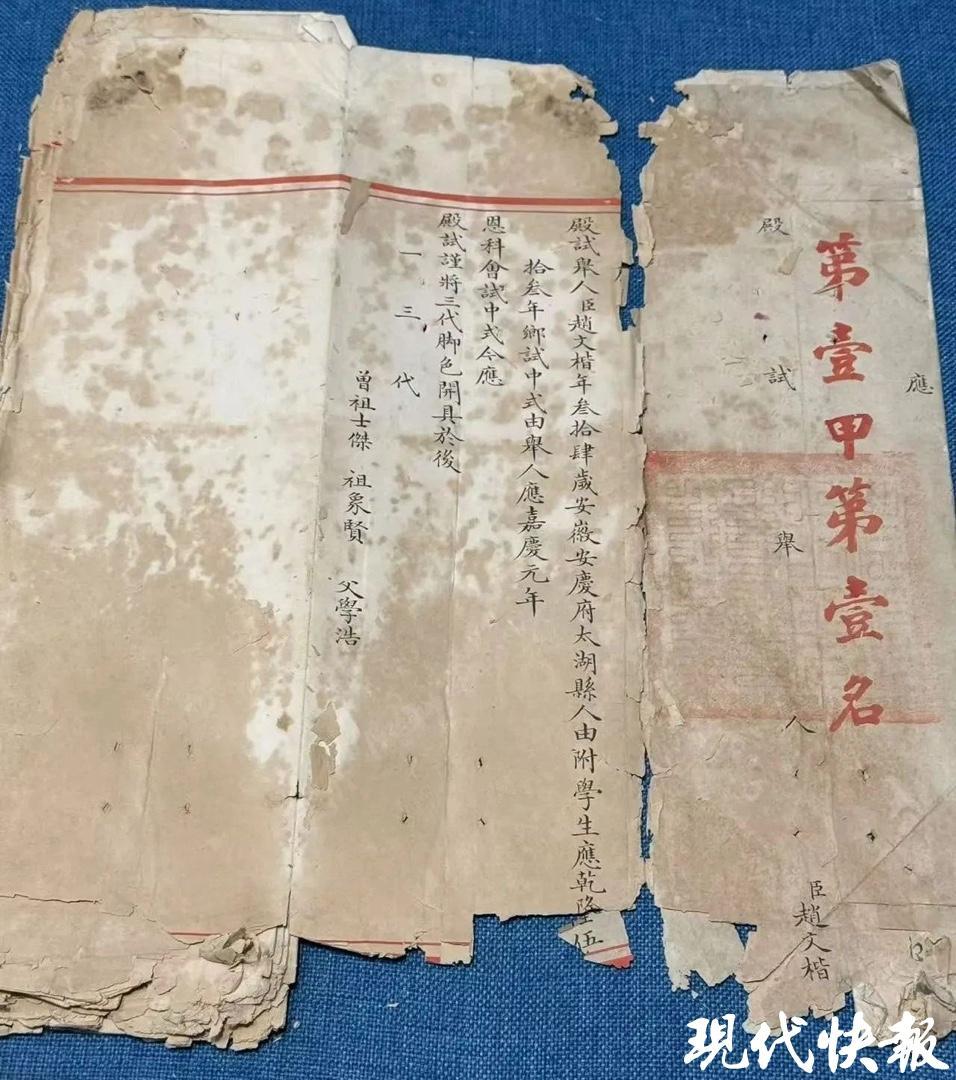 第壹甲第壹名
應
殿試舉人
臣趙文楷
殿試舉人臣趙文楷年叁拾肆歲安徽安慶府太湖縣人由附學生應乾隆伍
拾叁年鄉試中式由舉人應嘉慶元年
恩科會試中式今應
殿試謹將三代脚色開具於後
一三代
曾祖士傑 祖象賢 父學浩
現代快報